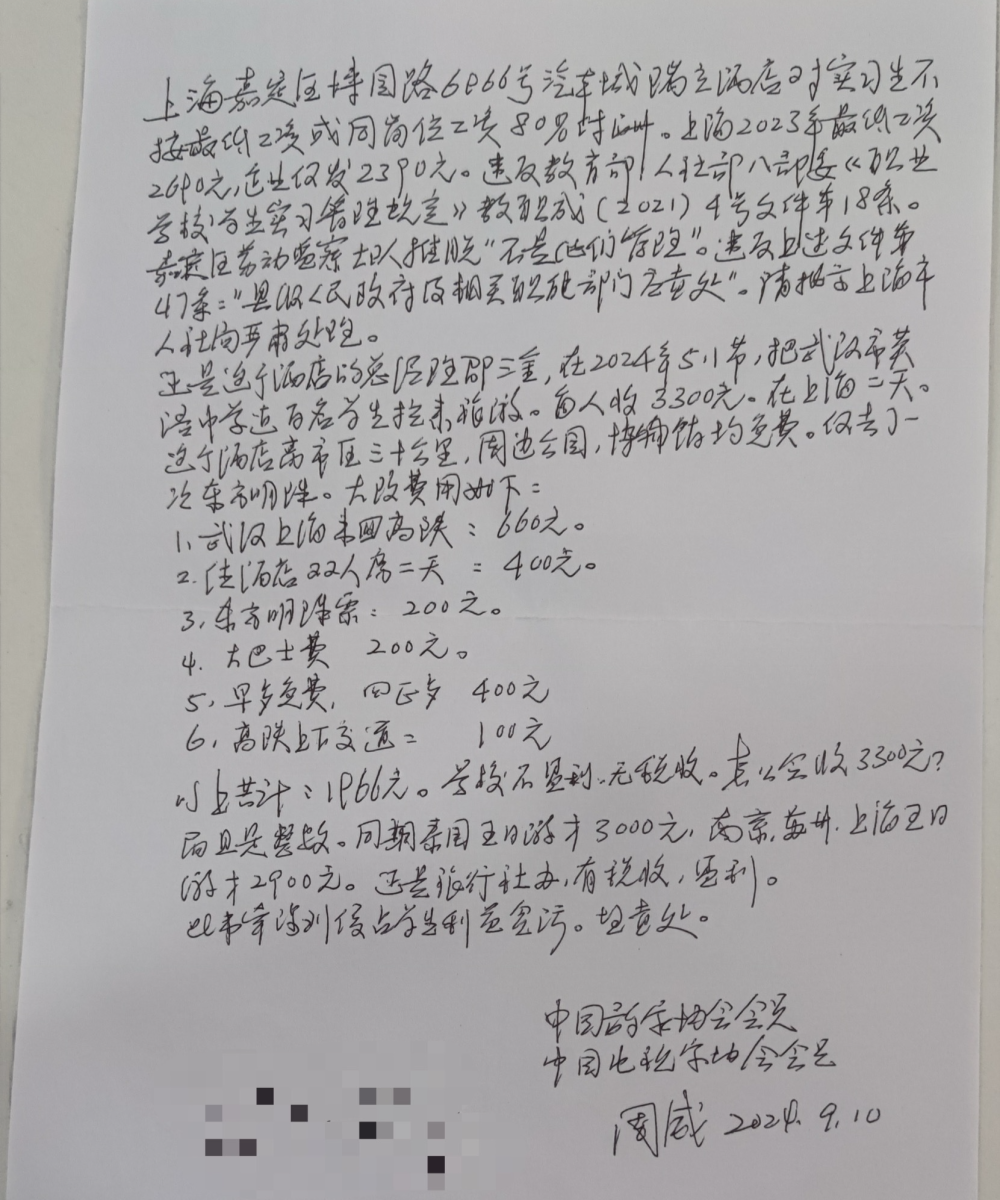 上海嘉定区博园路6866号汽车城瑞立酒店对实习生不
按最低工资或同岗位工资80%付酬。上海2023年最低工资
2690元,近生仅发2390元。违反教育部、人社部八部委《职业
学校学生实习管理规定》教职成(2021)4号文件第18条。
嘉定区劳动监察 人推脱“不是他们管理”。违反上述文件第
47条:“县级人民政府及相关职能部门应查处”。请批示上海市
人社局严肃处理。
还是这个酒店的总经理邵三金,在2024年5.1节,把武汉市英
中学近百名学生拉来旅游。每人收3300元。在上海二天。
这个酒店离市区三十公里,周边公园,博物馆均免费。仅去了一
次东方明珠。大致费用如下:
1、武汉上海来回高铁:660元。
2、住酒店双人房二天:400元。
3、东方明珠票:200元。
4、大巴士费 200元。
5、早歺免费,四正歺 400元
6、高铁上下交通= 100元
以上共计:1966元。学校不盈利、无税收。怎么会收3300元?
而且是整数。同期泰国五日游才3000元,南京、苏州、上海五日
游才2900元。还是旅行社办,有税收,盈利。
此事牵涉到侵占学生利益贪污。望查处。
中国 家协会会员
中国电视家协会会员
周威 2024.9.10